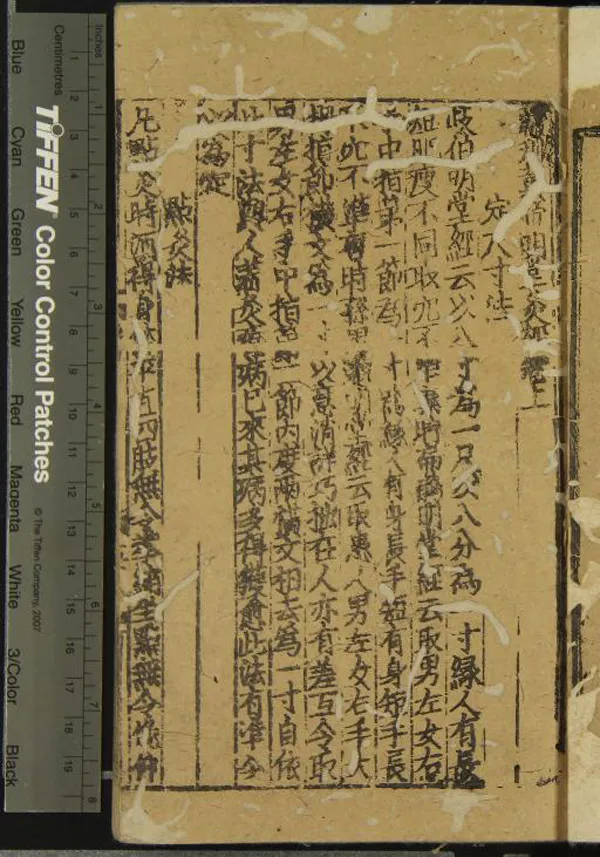 inches
Centimetres
1 2 3 4 5 6 7 8 9 10 11 12 13 14 15 16 17 18 19
1 2 3 4 5 6 7 8
TIFFEN Color Control Patches
© The Tiffen Company, 2007
Blue Cyan Green Yellow Red Magenta White 3/Color Black
明堂灸經 卷上
定尺寸法
岐伯明堂經云以八寸為一尺又以八分為一寸緣人有長
肥瘦不同取穴不明堂經云取男左女右
中指第一節為寸為緣人有身長手短有身短手長
穴不準時孫明堂經云取患人男左女右手大
指節橫文為一寸以意消詳巧拙在人亦有差互今取
男左女右手中指第二節內度兩橫文相去為一寸自依
此寸法與人著灸療病已來其病多得獲愈此法有準今
以為定
點灸法
凡點灸時須得身體平直四肢無令拳縮坐點無令俯仰